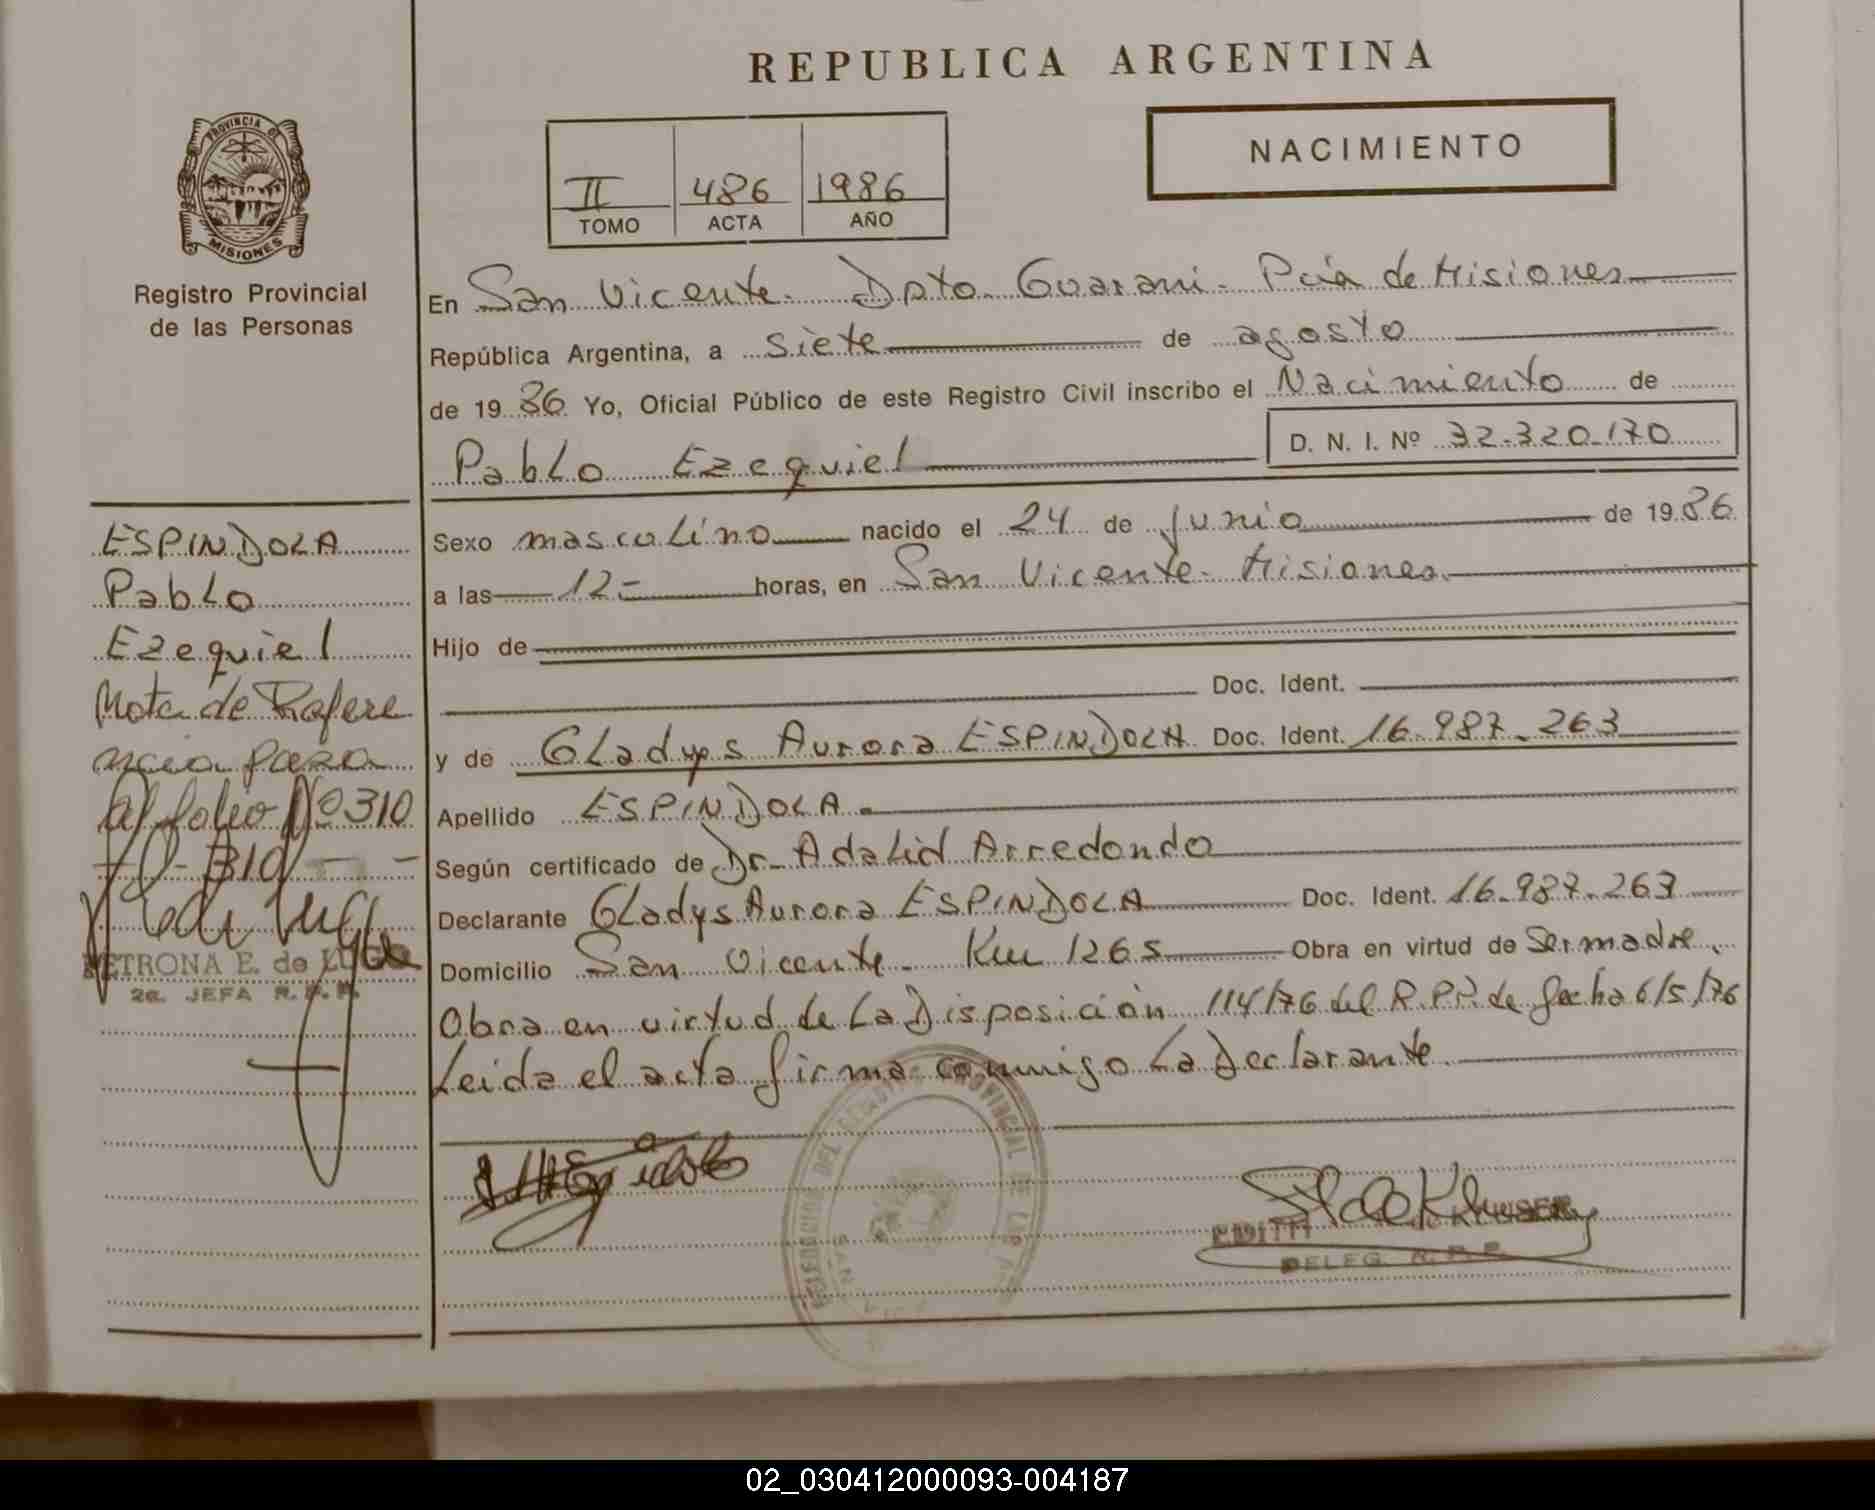 REPUBLICA ARGENTINA
NACIMIENTO
II 486 1986
TOMO ACTA AÑO
PROVINCIA DE
MISIONES
Registro Provincial
de las Personas
En San Vicente. Dpto Guarani. Pcia de Misiones
República Argentina, a siete de agosto
de 1986 Yo, Oficial Público de este Registro Civil inscribo el Nacimiento de
Pablo Ezequiel D. N. I. Nº 32.320.170
Sexo masculino nacido el 24 de Junio de 1986
a las 12 - horas, en San Vicente - Misiones.
Hijo de
Doc. Ident.
y de Gladys Aurora ESPINDOLA Doc. Ident. 16.987.263
Apellido ESPINDOLA.
Según certificado de Dr. Adalid Arredondo
Declarante Gladys Aurora ESPINDOLA Doc. Ident. 16.987.263
Domicilio San Vicente. Km 1265 Obra en virtud de Ser madre.
Obra en virtud de La Disposición 114/76 del R.P.P. de fecha 6/5/76
Leida el acta firma conmigo La Declarante.
ESPINDOLA
Pablo
Ezequiel
Nota de Refere
ncia pasa
al folio Nº 310
310
PETRONA E. de LUGO
2a. JEFA R.P.P.
EDITH KLUSER
DELEG. R. P. P.
02_030412000093-004187